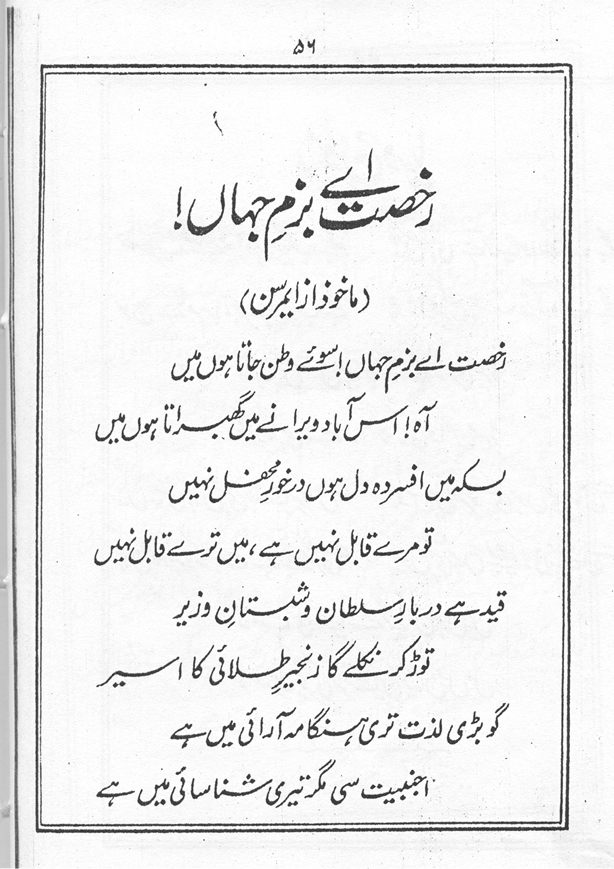 ۵۶
رخصت اے بزمِ جہاں!
(ماخوذ از ایمرسن)
رخصت اے بزمِ جہاں! سوئے وطن جاتا ہوں میں
آہ! اس آباد ویرانے میں گھبراتا ہوں میں
بسکہ میں افسردہ دل ہوں درخورِ محفل نہیں
تو مرے قابل نہیں ہے، میں ترے قابل نہیں
قید ہے دربارِ سلطان و شبستانِ وزیر
توڑ کر نکلے گا زنجیرِ طلائی کا اسیر
گو بڑی لذت تری ہنگامہ آرائی میں ہے
اجنبیت سی مگر تیری شناسائی میں ہے